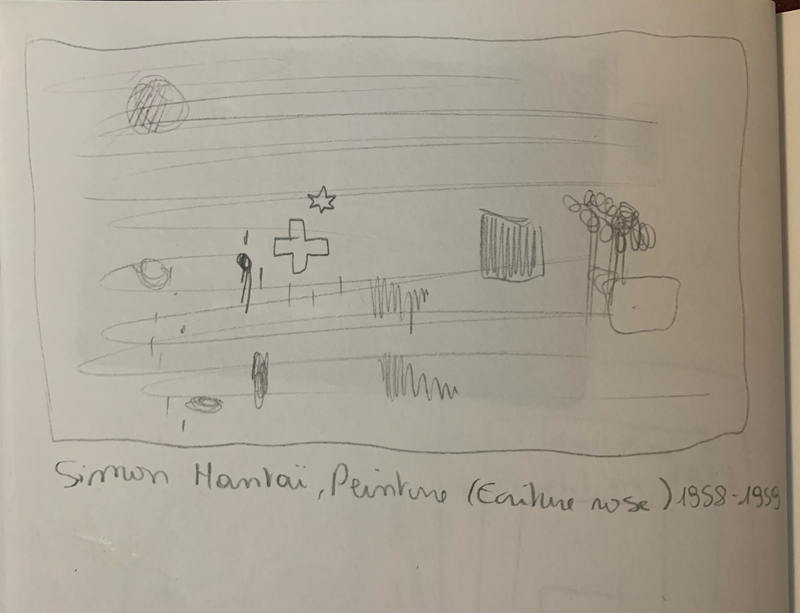 Simon Hantaï, Peinture (Ecriture rose) 1958-1959